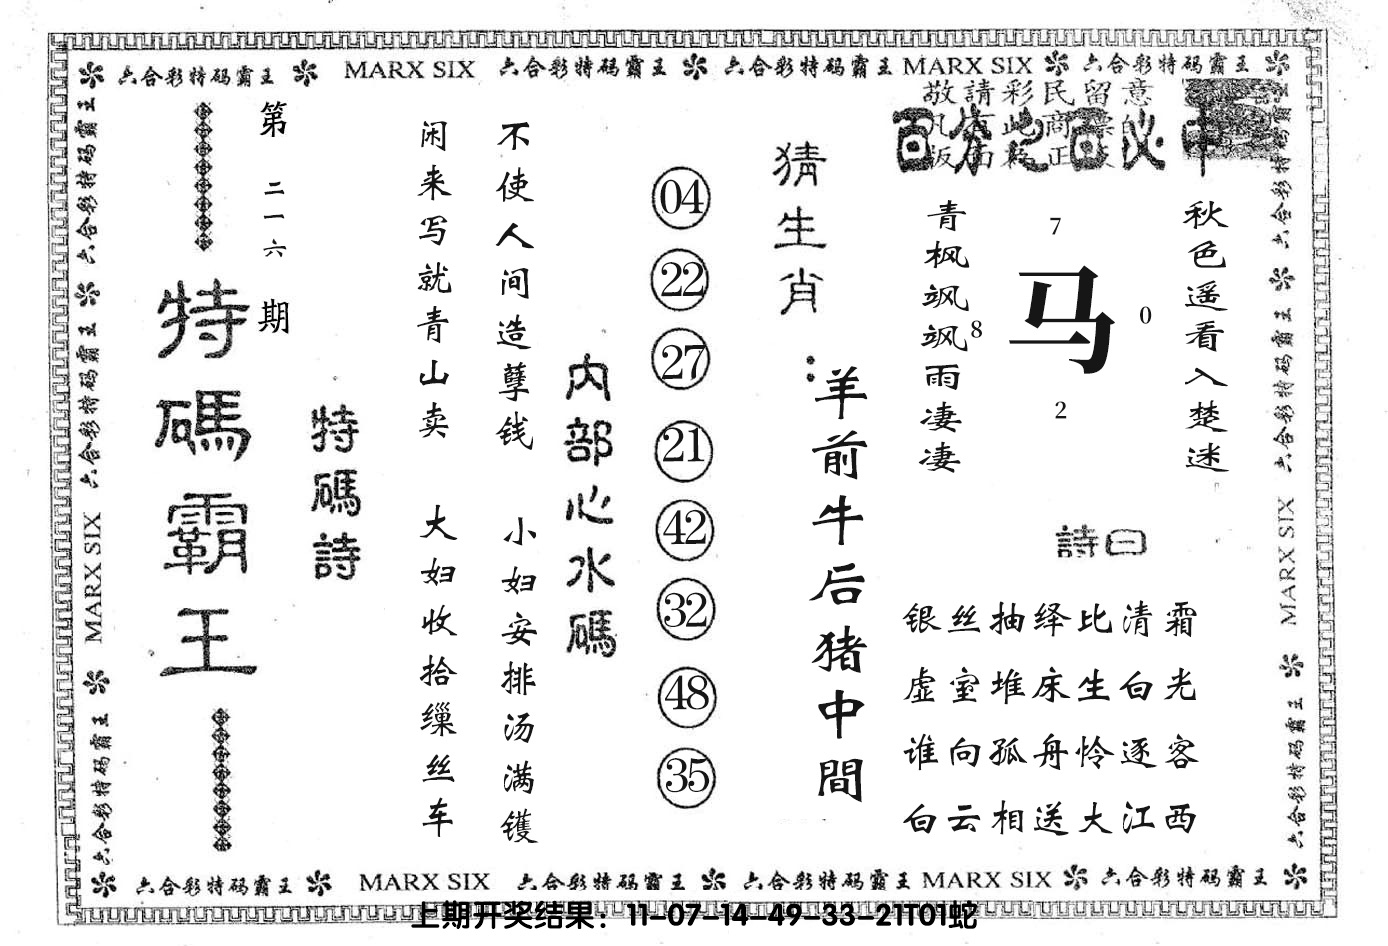 六合彩特码霸王 MARX SIX 六合彩特码霸王 六合彩特码霸王 MARX SIX 六合彩特码霸王
敬請彩民留意
百分之百必中
秋色遥看入楚迷
青枫飒飒雨凄凄
7
马
8
0
2
詩曰
银丝抽绎比清霜
虚室堆床生白光
谁向孤舟怜逐客
白云相送大江西
猜生肖：
羊前牛后猪中間
04
22
27
21
42
32
48
35
内部心水碼
不使人间造孽钱
小妇安排汤满镬
闲来写就青山卖
大妇收拾缫丝车
特碼詩
第二一六期
特碼霸王
六合彩特码霸王 六合彩特码霸王 MARX SIX 六合彩特码霸王
六合彩特码霸王 六合彩特码霸王 MARX SIX 六合彩特码霸王
六合彩特码霸王 MARX SIX 六合彩特码霸王 六合彩特码霸王 MARX SIX 六合彩特码霸王
上期开奖结果：11-07-14-49-33-21T01蛇